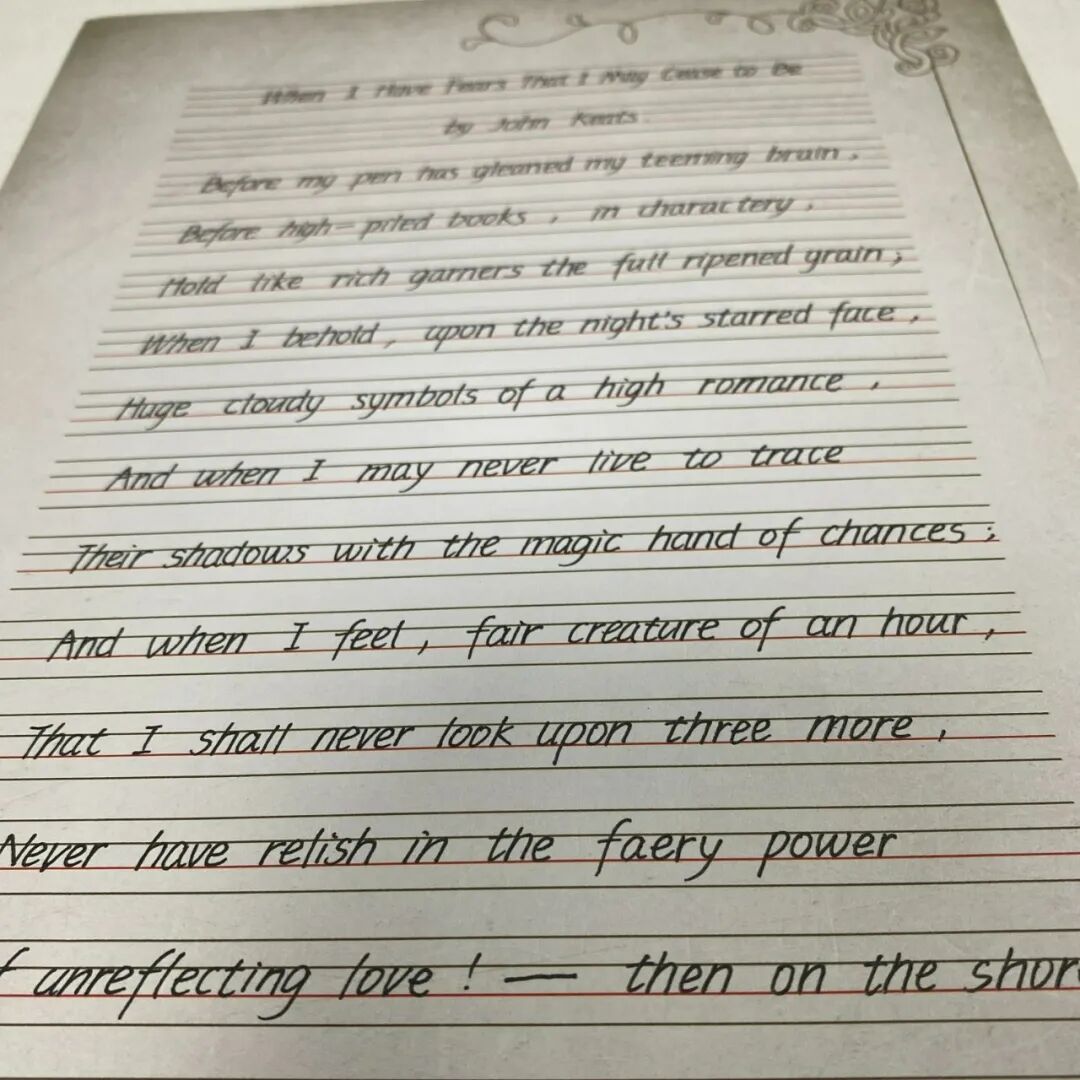 When I Have Fears That I May Cease to Be
by John Keats
Before my pen has gleaned my teeming brain,
Before high-piled books, in charactery,
Hold like rich garners the full ripened grain;
When I behold, upon the night's starred face,
Huge cloudy symbols of a high romance,
And when I may never live to trace
Their shadows with the magic hand of chances;
And when I feel, fair creature of an hour,
That I shall never look upon three more,
Never have relish in the faery power
f unreflecting love! — then on the shor